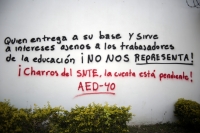 Quien entrega a su base y sirve
a intereses ajenos a los trabajadores
de la educación ¡NO NOS REPRESENTA!
¡Charros del SNTE, la cuenta está pendiente!
AED-40